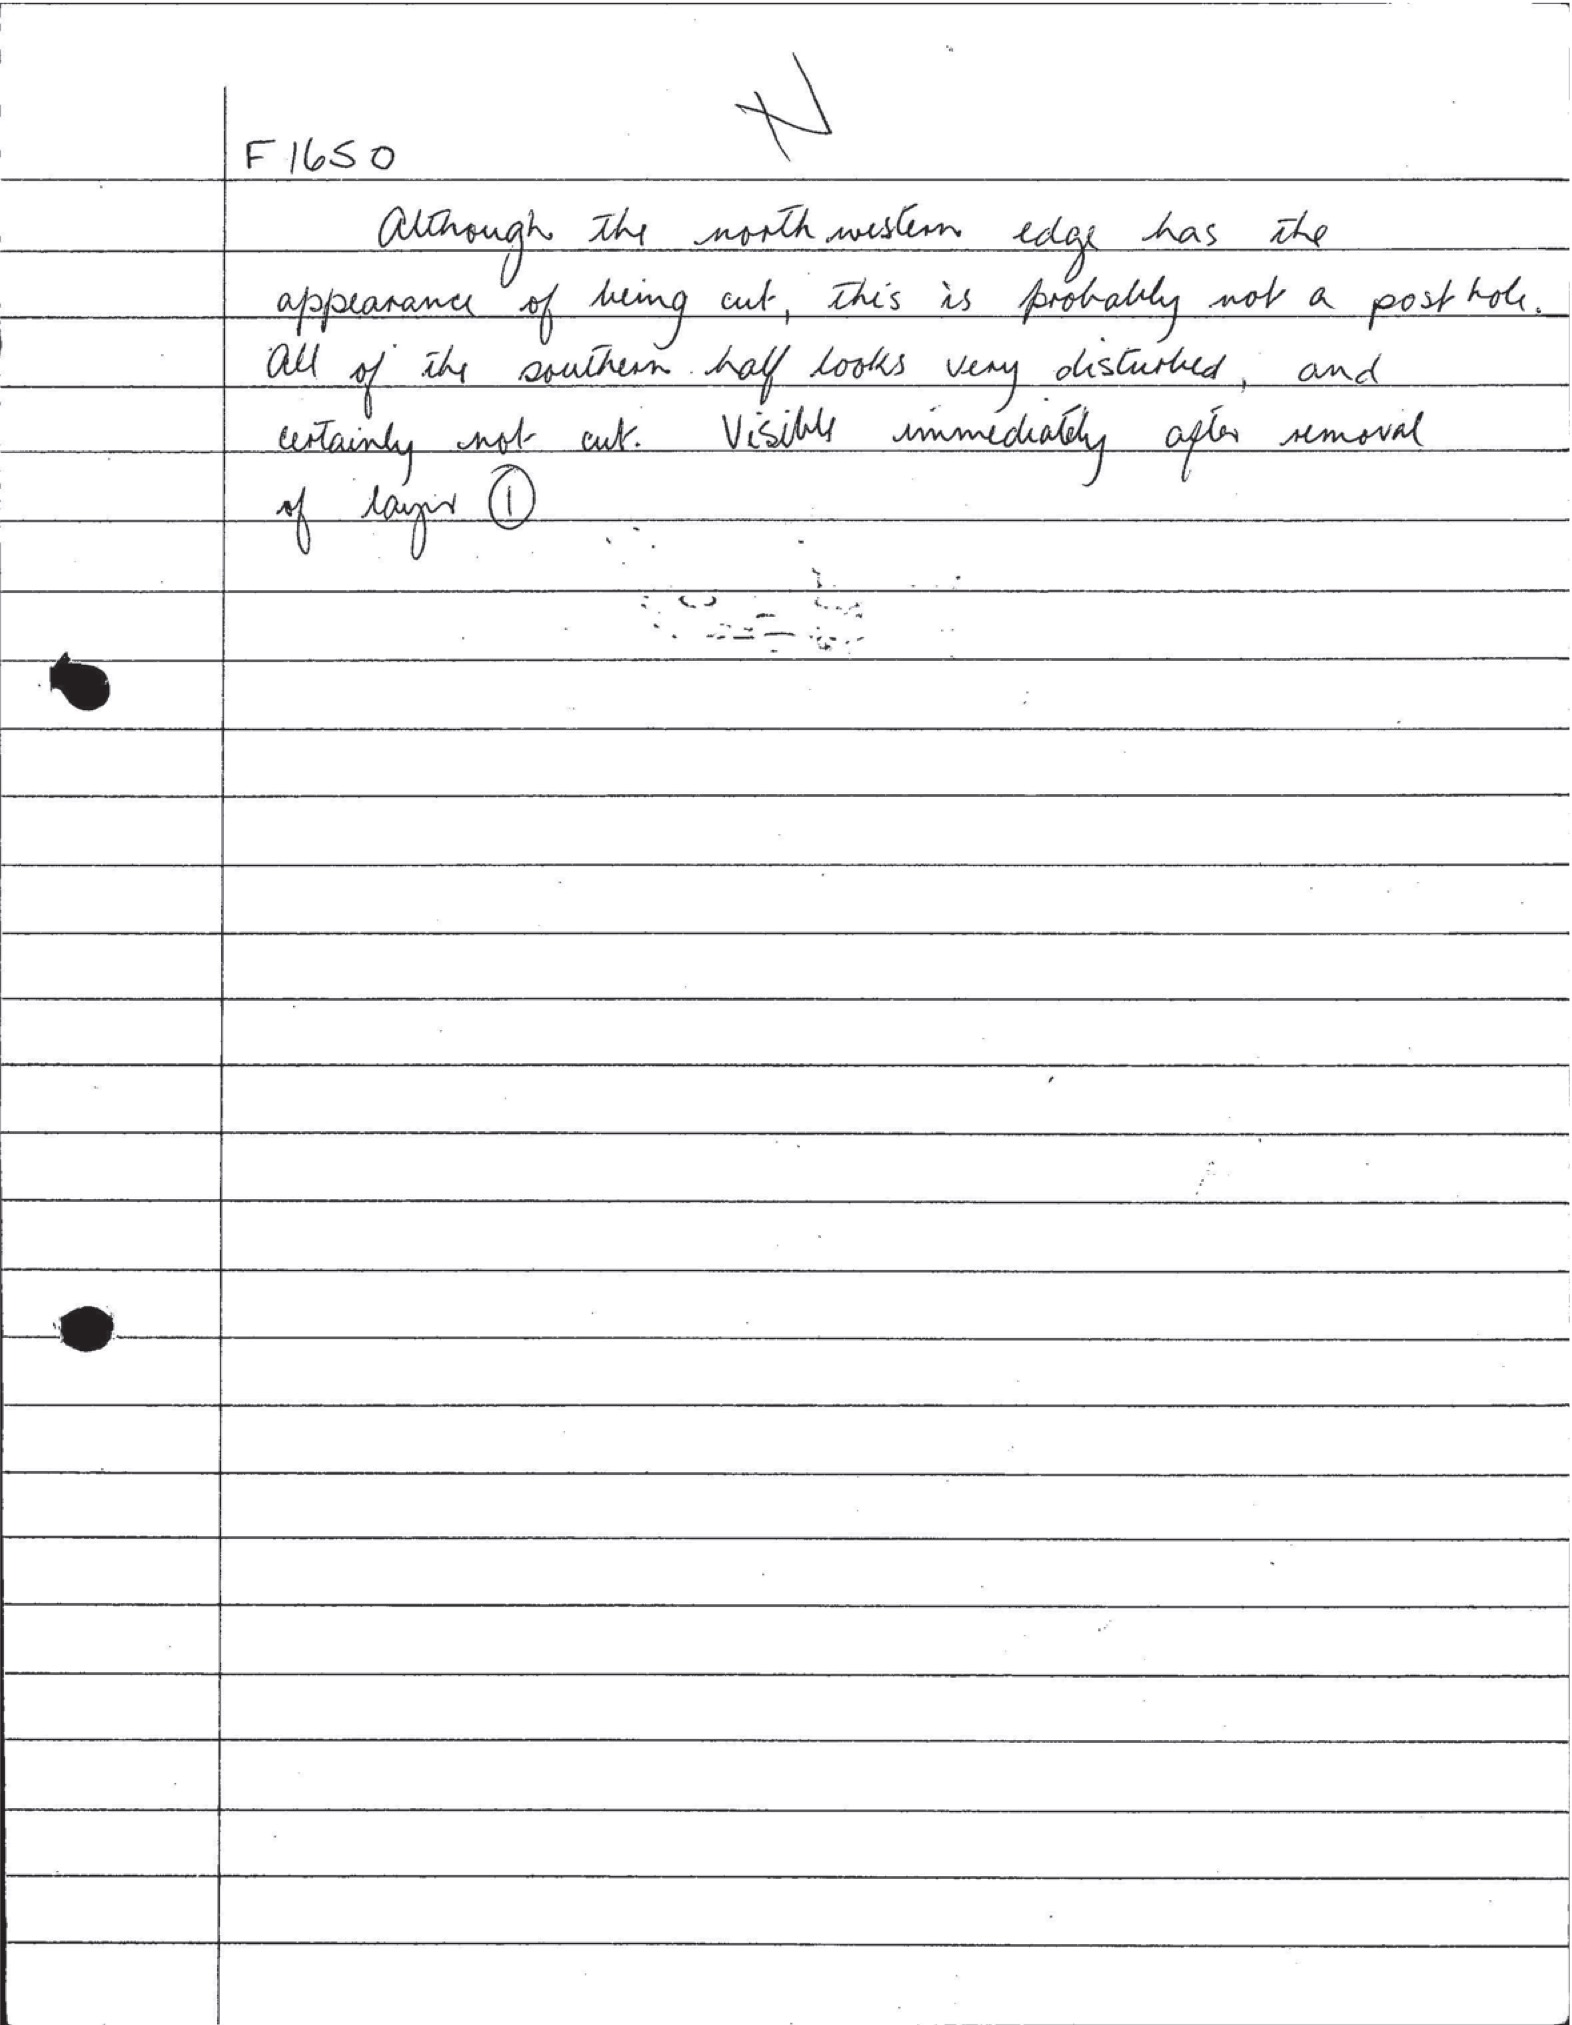 N
F1650
Although the north western edge has the
appearance of being cut, this is probably not a post hole.
All of the southern half looks very disturbed, and
certainly not cut. Visible immediately after removal
of layer ①